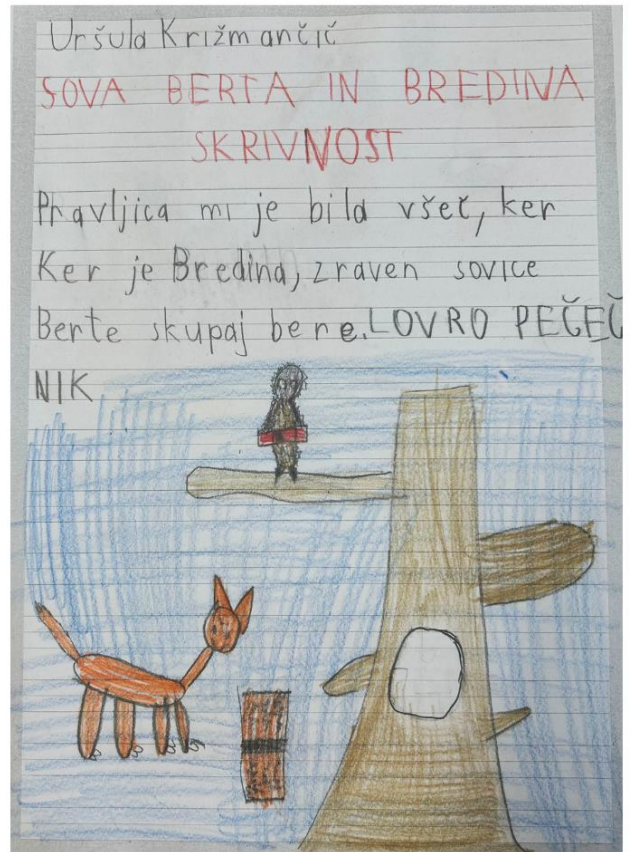 Uršula Križmančič
SOVA BERTA IN BREDINA
SKRIVNOST
Pravljica mi je bila všeč, ker
Ker je Bredina, zraven sovice
Berte skupaj bere. LOVRO PEČEČ
NIK